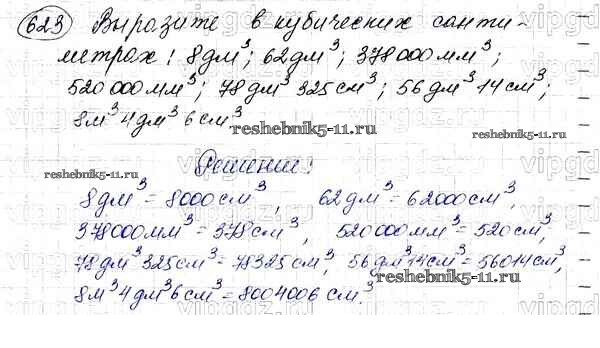 623 Выразите в кубических санти-
метрах: 8дм³; 62дм³; 378000мм³;
520000мм³; 78дм³ 325см³; 56дм³ 14см³;
8м³ 4дм³ 6см³
reshebnik5-11.ru
reshebnik5-11.ru
Решение:
8дм³ = 8000см³, 62дм³ = 62000см³,
378000мм³ = 378см³, 520000мм³ = 520см³,
78дм³ 325см³ = 78325см³, 56дм³ 14см³ = 56014см³,
reshebnik5-11.ru
8м³ 4дм³ 6см³ = 8004006 см³
reshebnik5-11.ru